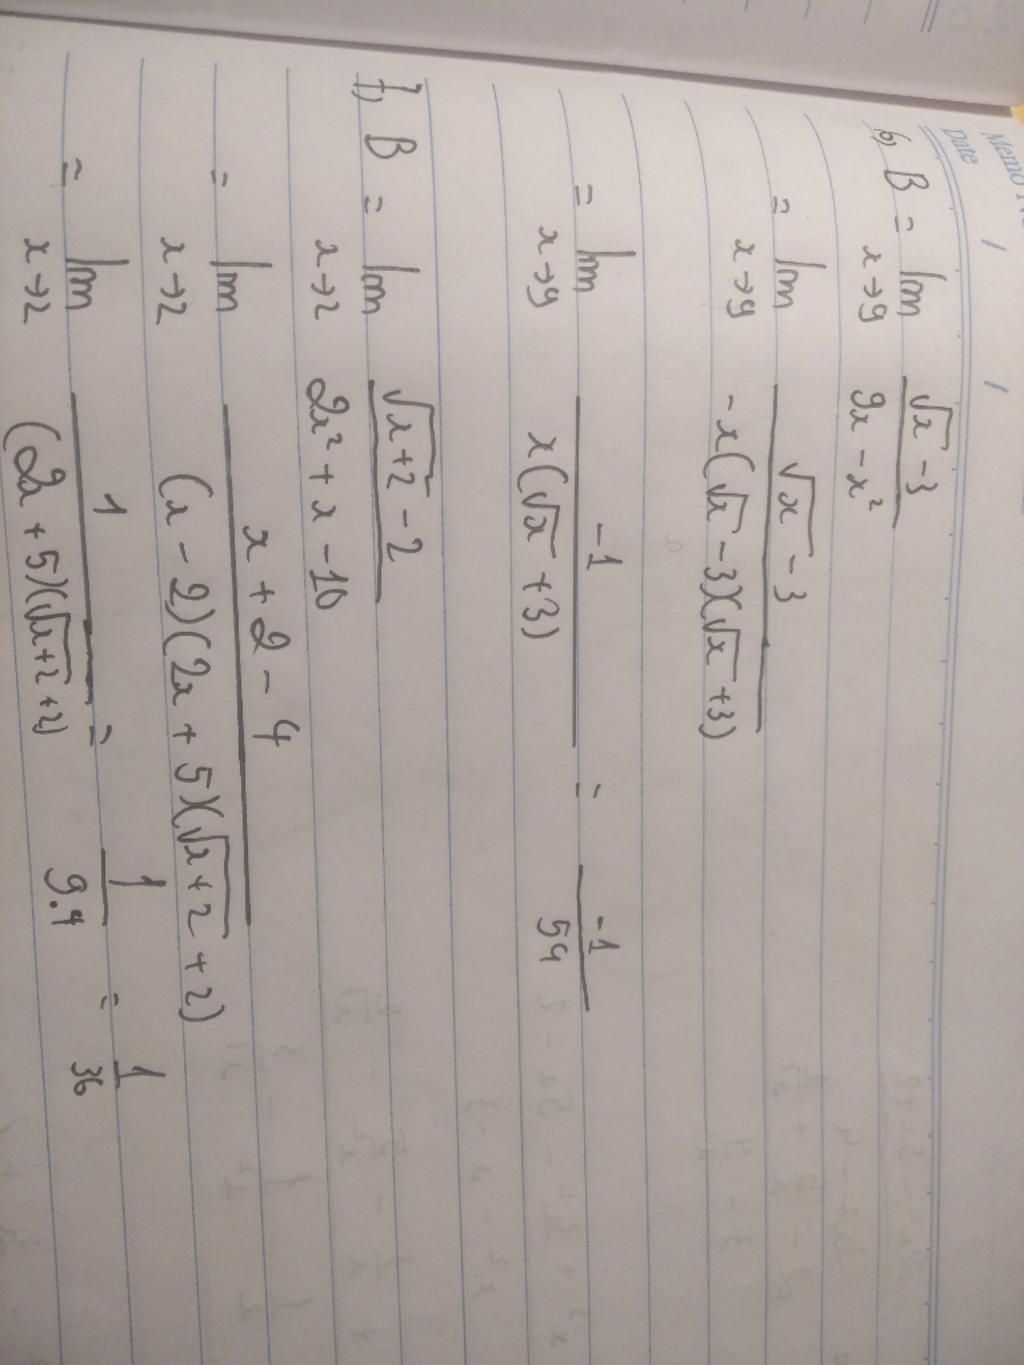 Date
6) B = lim x→9 (√x - 3)/(9x - x²)
= lim x→9 (√x - 3)/(-x(√x - 3)(√x + 3))
= lim x→9 -1/(x(√x + 3)) = -1/54
7) B = lim x→2 (√(x+2) - 2)/(2x² + x - 10)
= lim x→2 (x + 2 - 4)/((x - 2)(2x + 5)(√(x+2) + 2))
= lim x→2 1/((2x + 5)(√(x+2) + 2)) = 1/(9.4) = 1/36